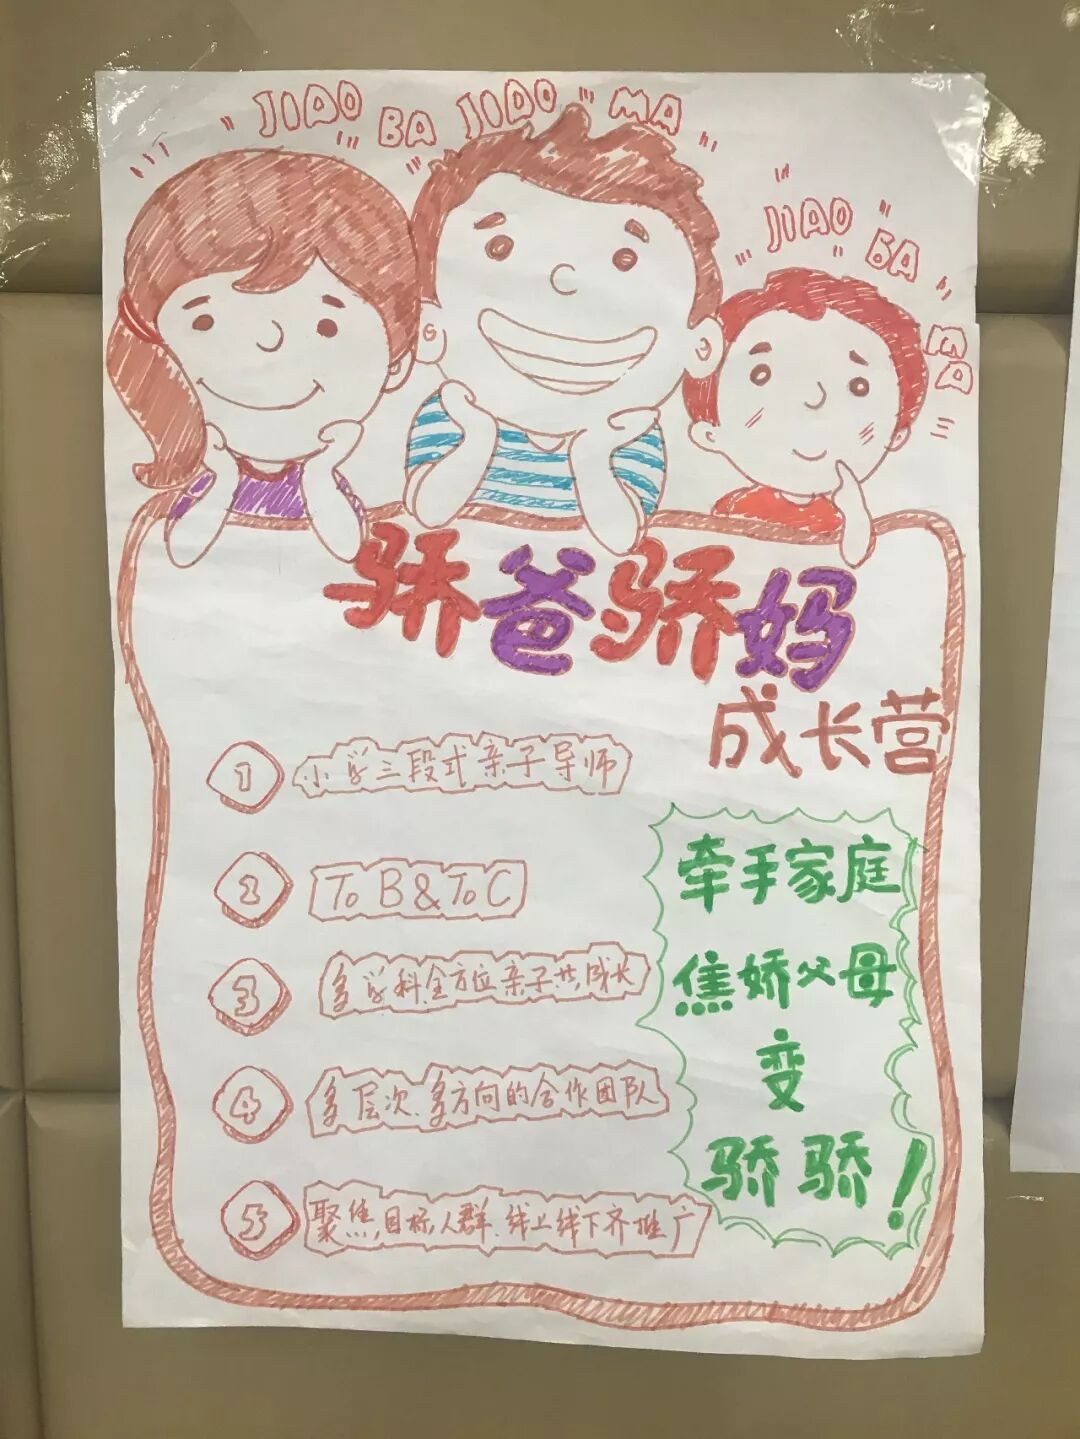 JIAO BA JIAO MA
JIAO BA MA
骄爸骄妈
成长营
1 小学三段式亲子导师
2 To B & To C
3 多学科全方位亲子共成长
4 多层次、多方向的合作团队
5 聚焦目标人群、线上线下齐推广
牵手家庭
焦娇父母
变
骄骄！